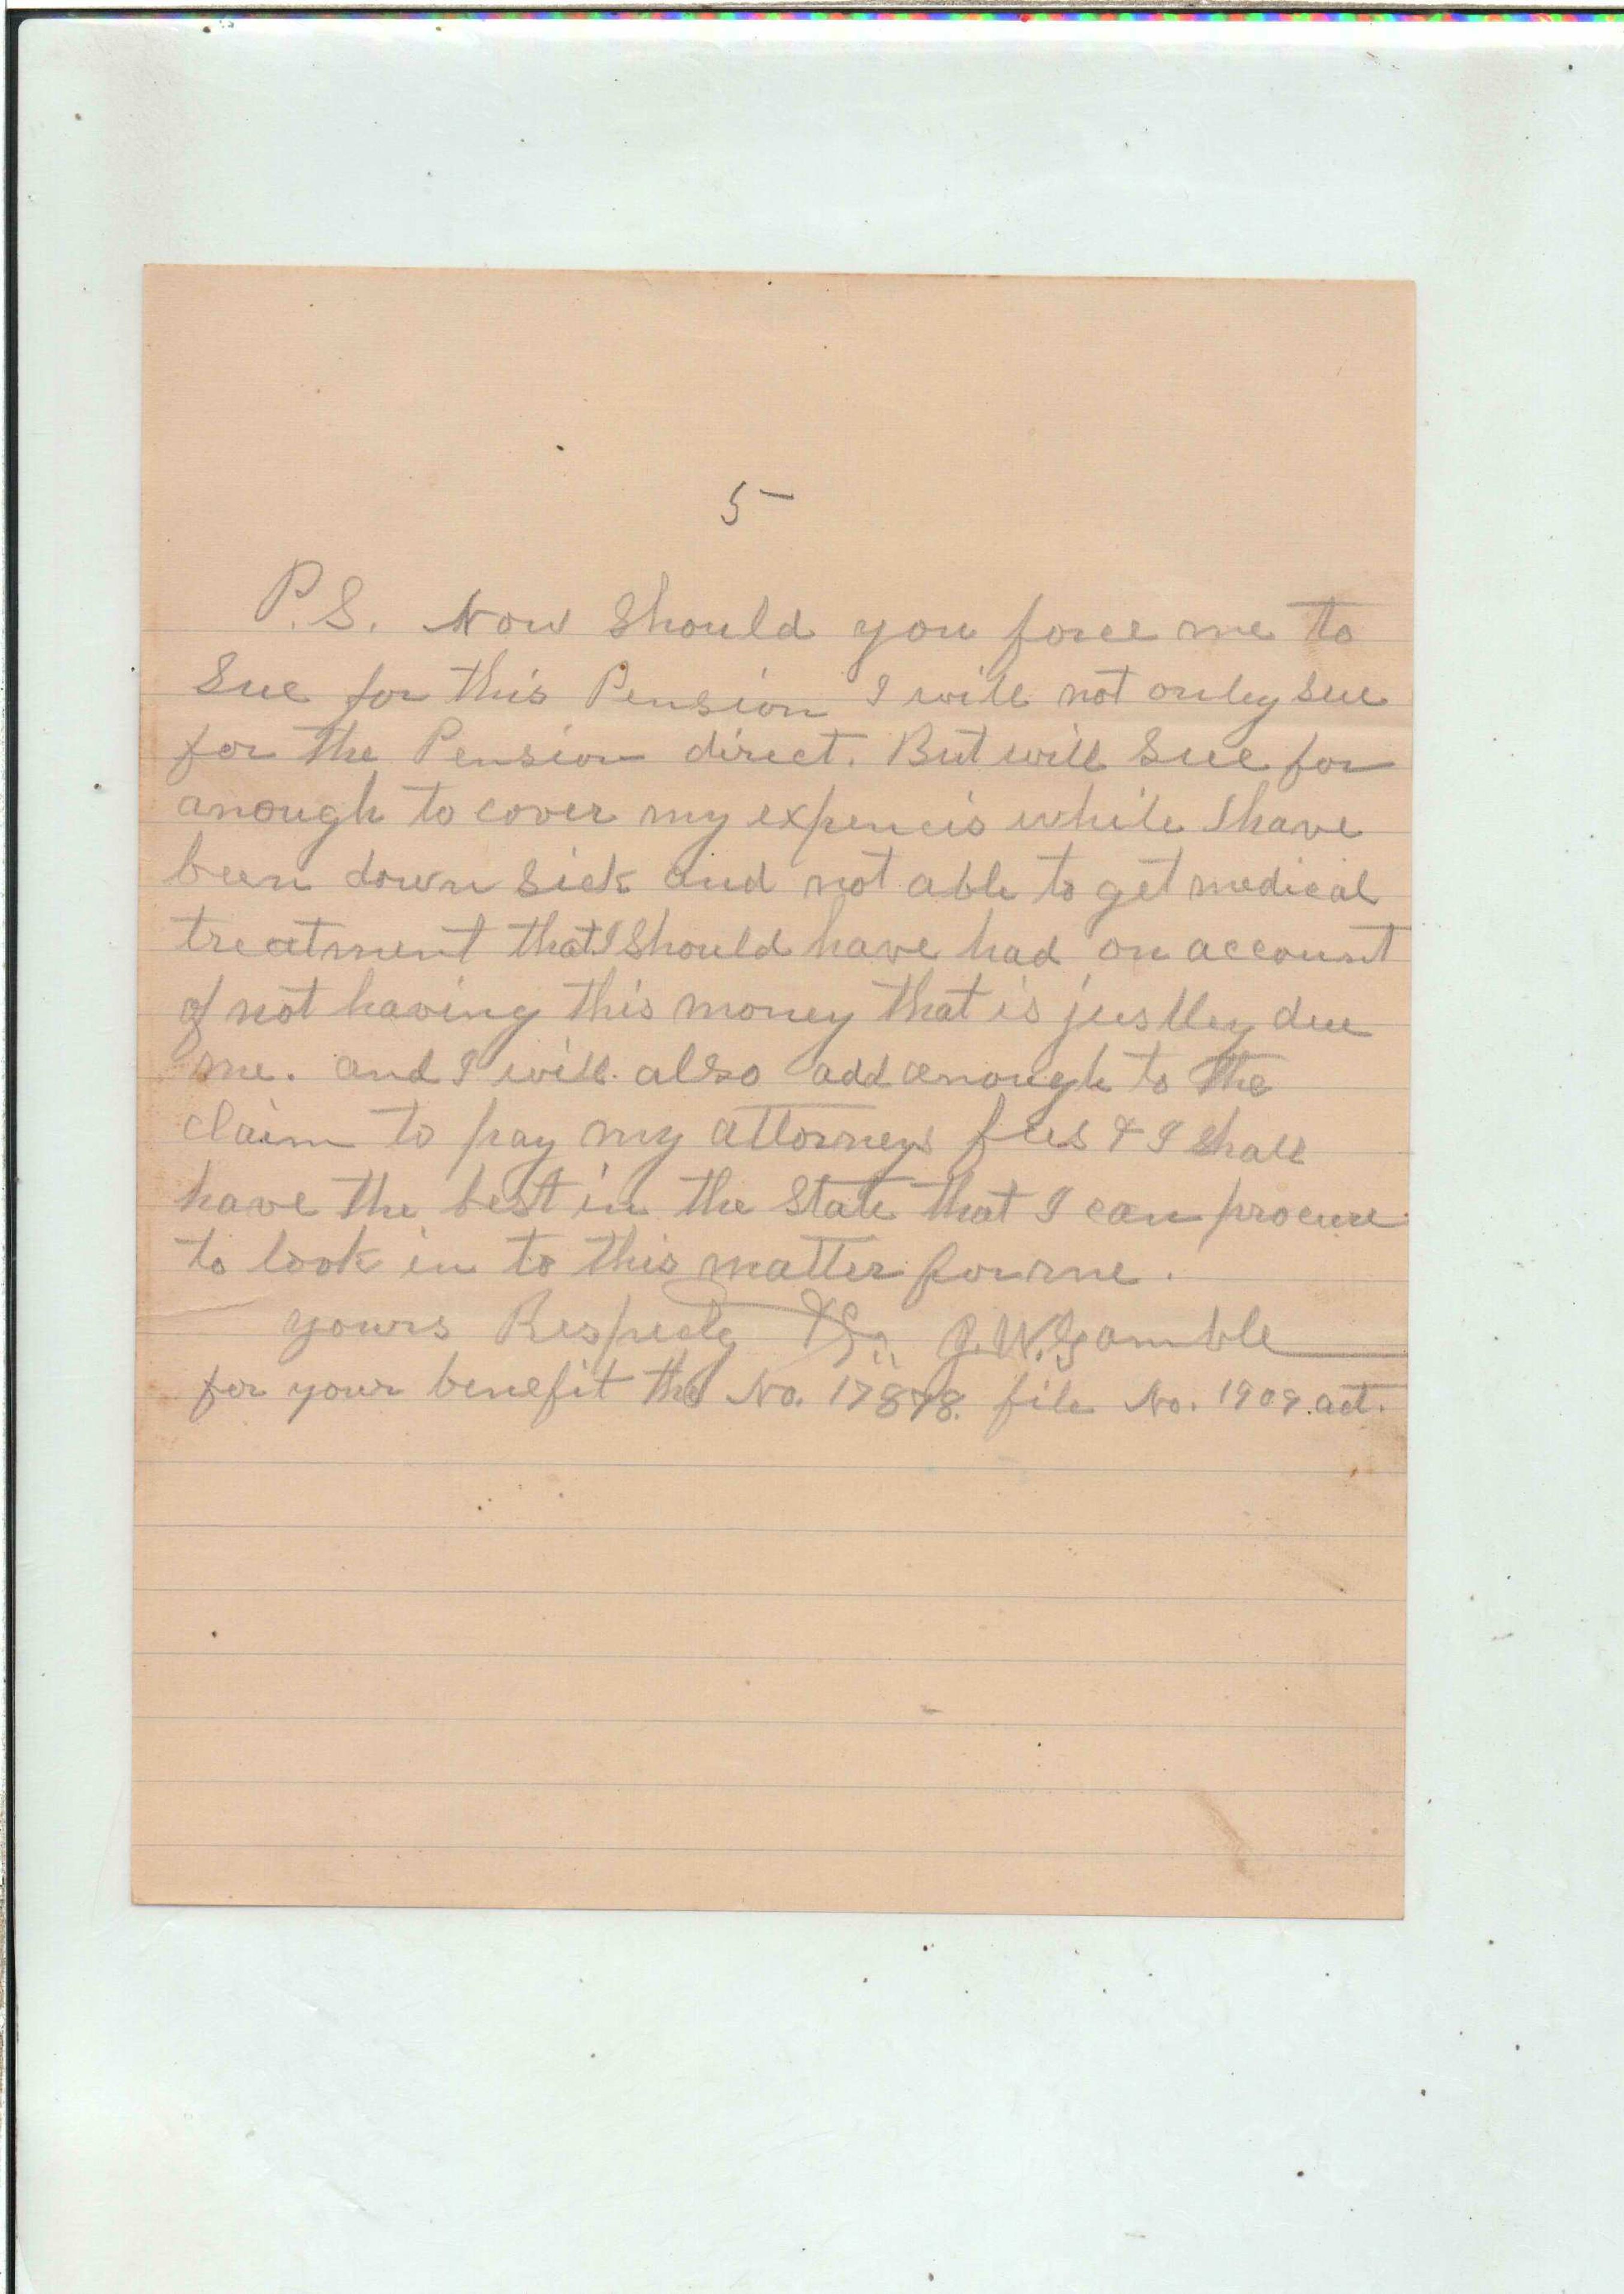 5
P.S. Now Should you force me to
Sue for this Pension I will not only sue
for the Pension direct. But will Sue for
anough to cover my expencis while I have
been down Sick and not able to get medical
treatment that I Should have had on account
of not having this money that is justley due
me. and I will also add anough to the
claim to pay my attorneys fees & I shall
have the best in the State that I can procure
to look in to this matter for me.
yours Respectly &c. J.W. Gamble
for your benefit the No. 17878. file No. 1909. act.